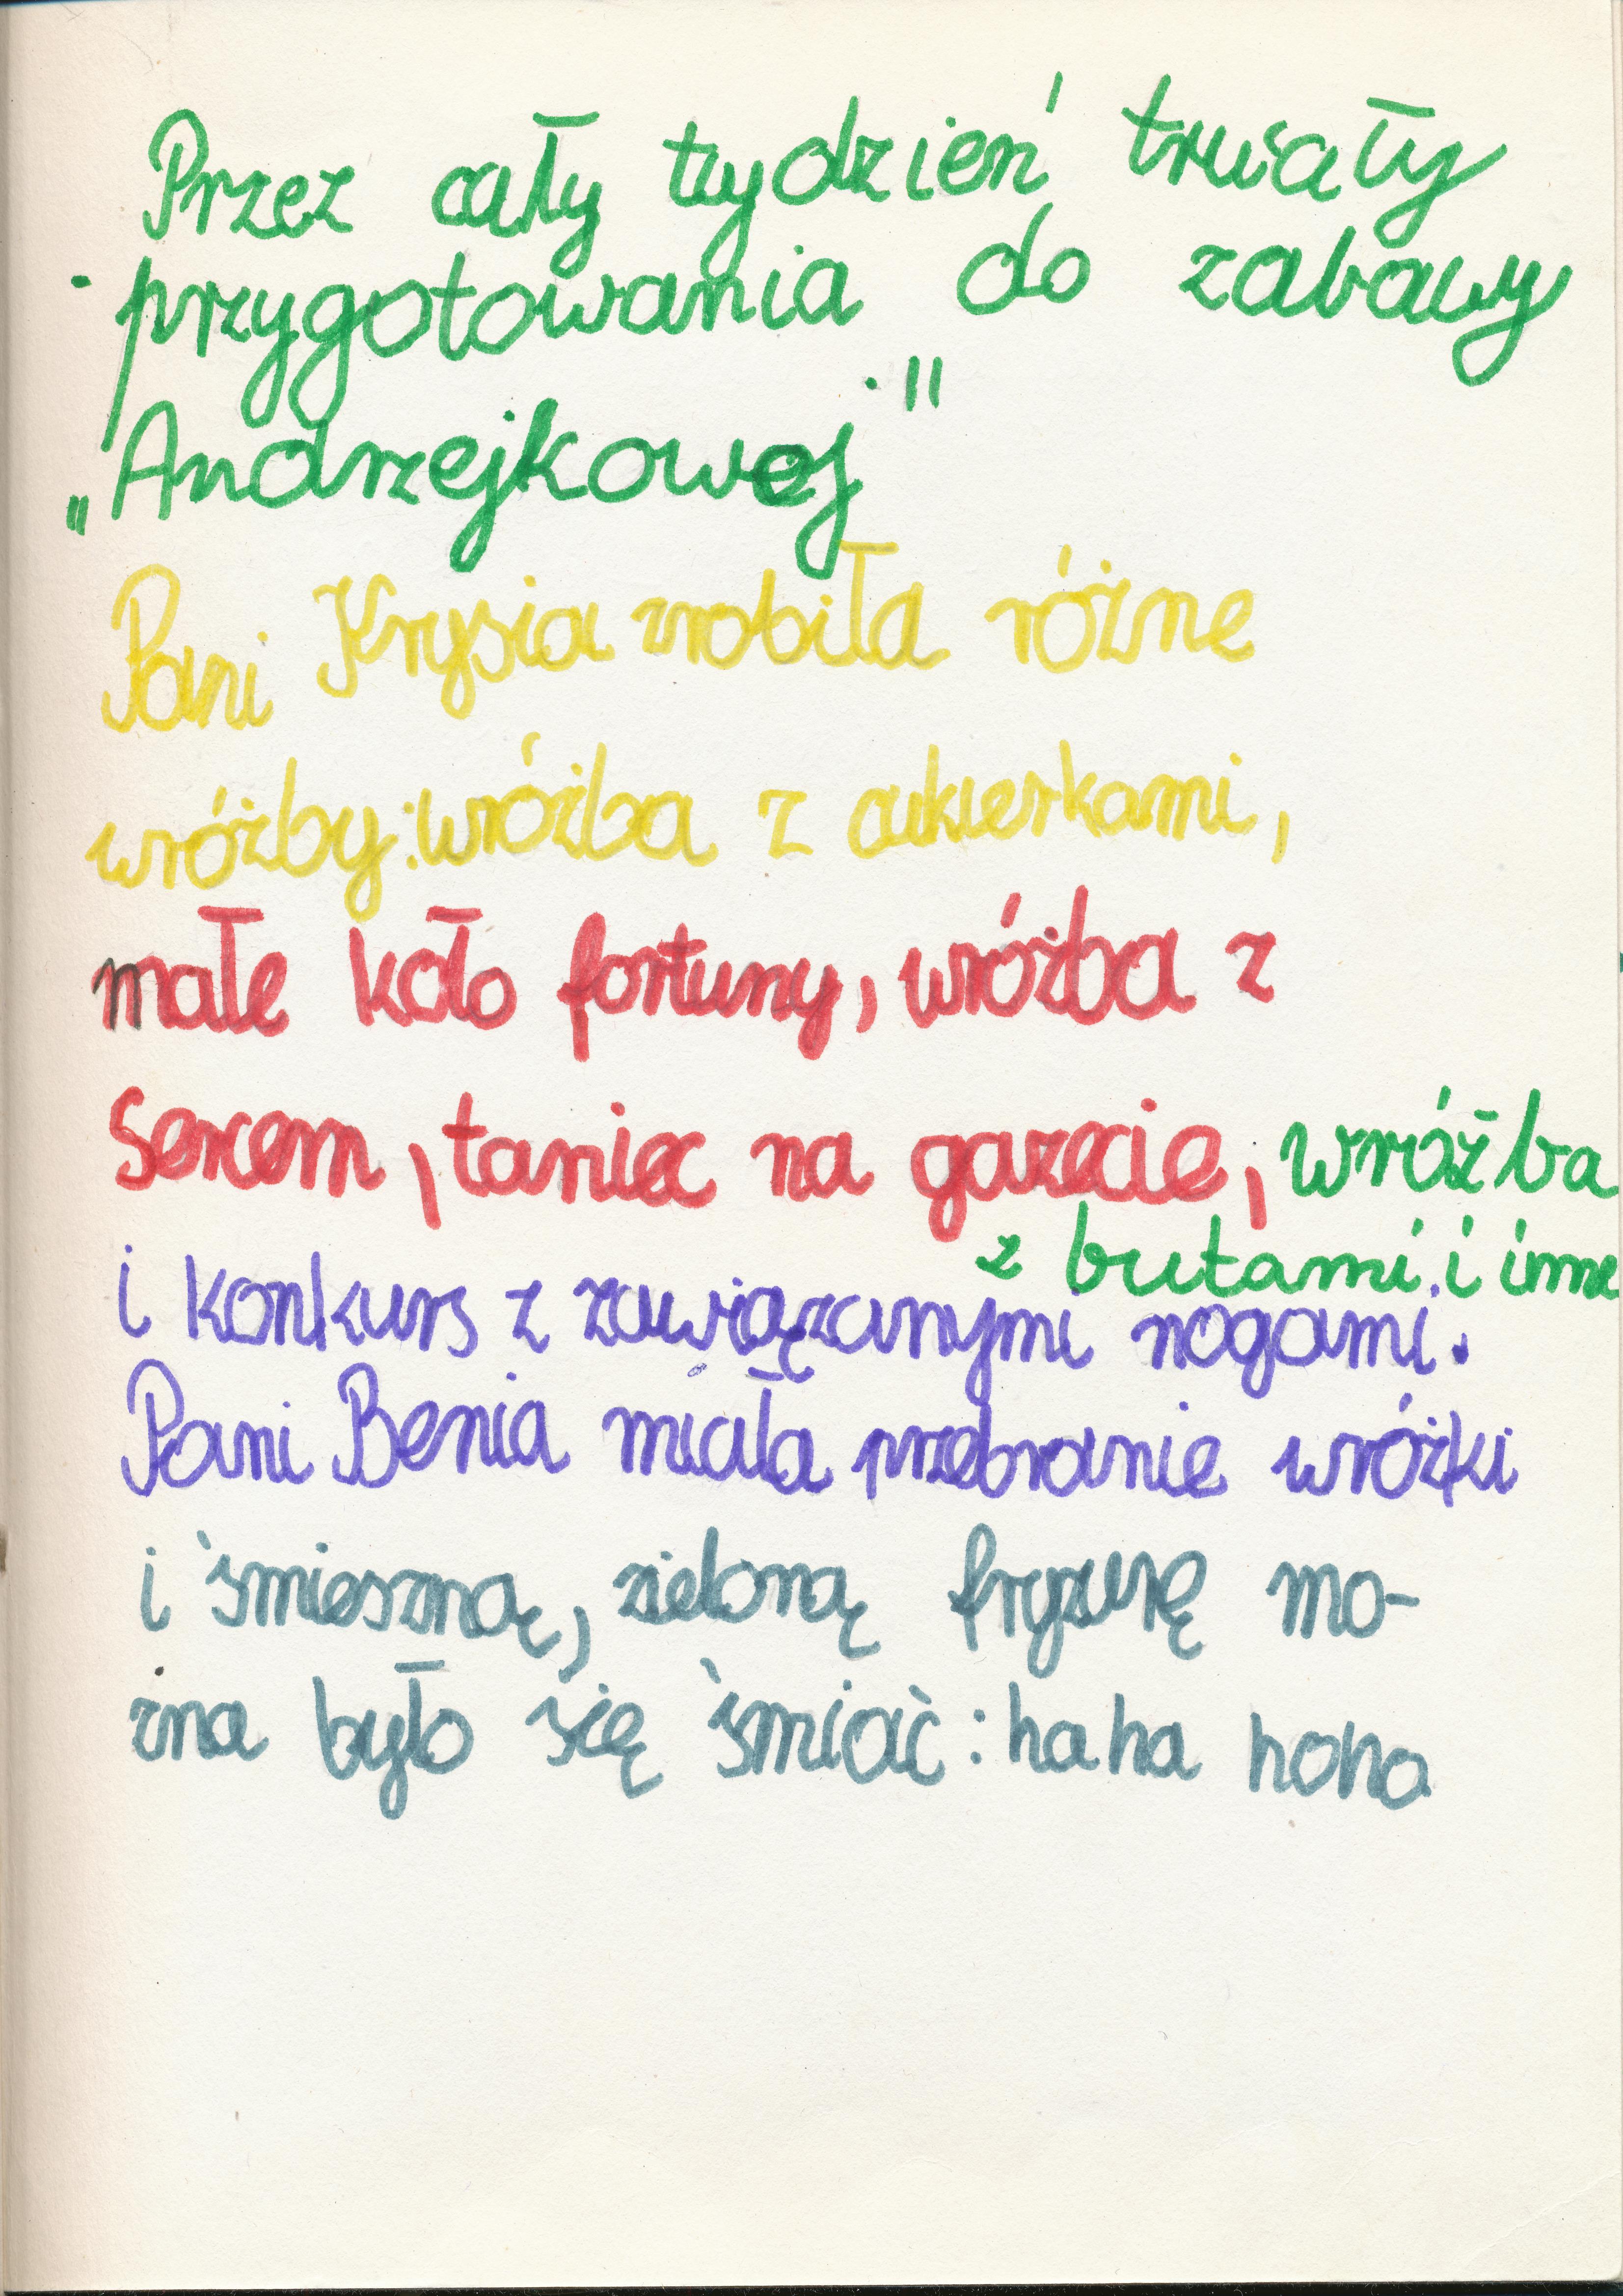 Przez cały tydzień trwały
przygotowania do zabawy
„Andrzejkowej"
Pani Krysia zrobiła różne
wróżby: wróżba z cukierkami,
małe koło fortuny, wróżba z
sercem, taniec na gazecie, wróżba
z butami i inne
i konkurs z zawiązanymi nogami.
Pani Benia miała przebranie wróżki
i śmieszną, zieloną fryzurę mo-
żna było się śmiać: ha ha hoho